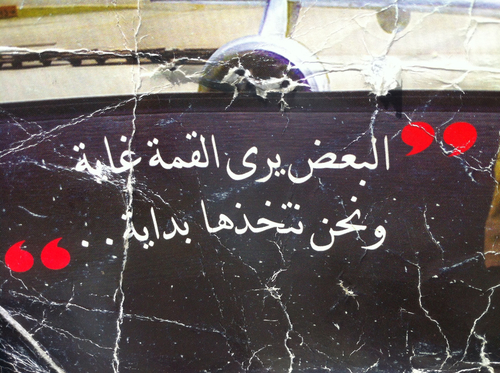 البعض يرى القمة غاية
ونحن نتخذها بداية..